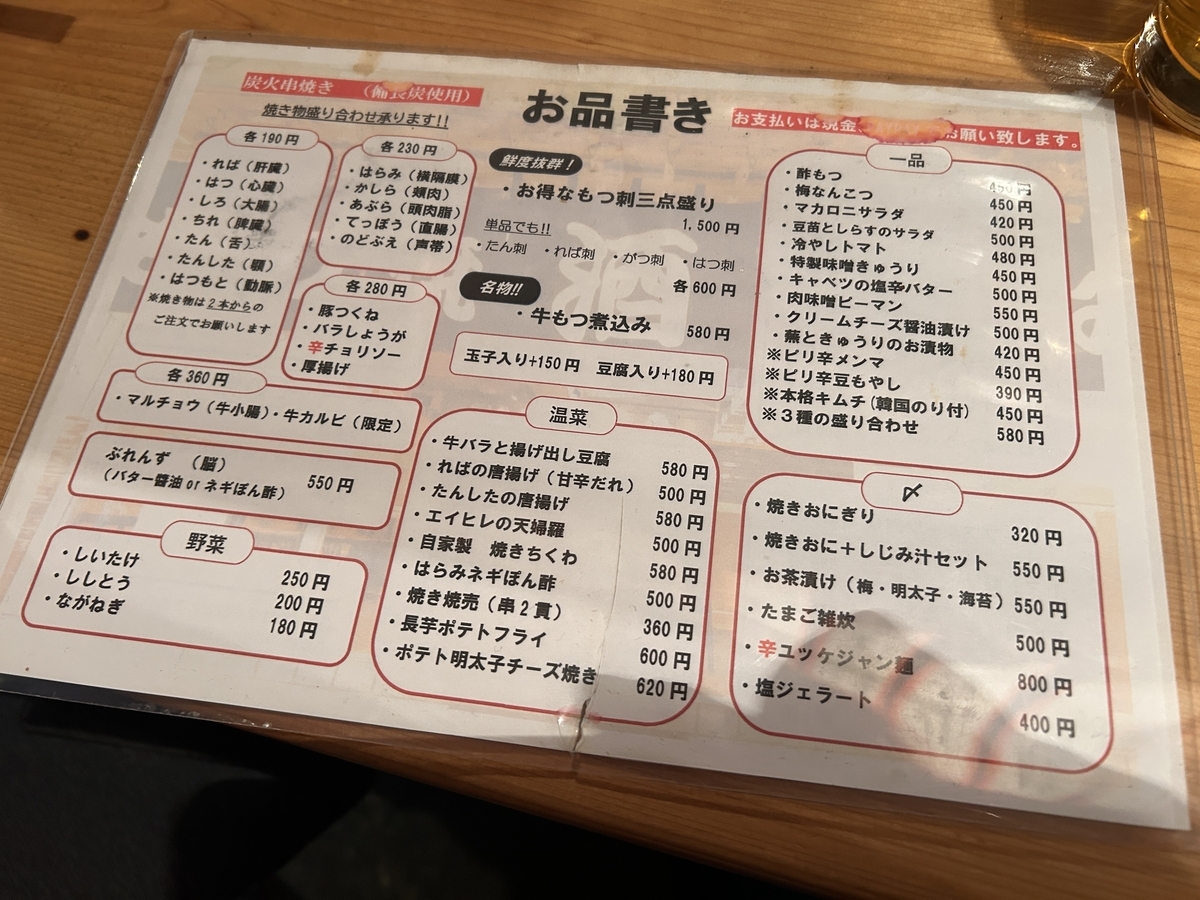 炭火串焼き （備長炭使用）
焼き物盛り合わせ承ります!!
お品書き
お支払いは現金 お願い致します。
各190円
・れば（肝臓）
・はつ（心臓）
・しろ（大腸）
・ちれ（脾臓）
・たん（舌）
・たんした（顎）
・はつもと（動脈）
※焼き物は２本からの
ご注文でお願いします
各230円
・はらみ（横隔膜）
・かしら（頬肉）
・あぶら（頭肉脂）
・てっぽう（直腸）
・のどぶえ（声帯）
各280円
・豚つくね
・バラしょうが
・辛チョリソー
・厚揚げ
各360円
・マルチョウ（牛小腸）・牛カルビ（限定）
ぶれんず （脳） 550円
（バター醤油 or ネギぽん酢）
野菜
・しいたけ 250円
・ししとう 200円
・ながねぎ 180円
鮮度抜群！
・お得なもつ刺三点盛り
1,500円
単品でも!!
・たん刺 ・れば刺 ・がつ刺 ・はつ刺
各600円
名物!!
・牛もつ煮込み 580円
玉子入り+150円 豆腐入り+180円
温菜
・牛バラと揚げ出し豆腐 580円
・ればの唐揚げ（甘辛だれ） 500円
・たんしたの唐揚げ 580円
・エイヒレの天婦羅 500円
・自家製 焼きちくわ 580円
・はらみネギぽん酢 500円
・焼き焼売（串２貫） 360円
・長芋ポテトフライ 600円
・ポテト明太子チーズ焼き 620円
一品
・酢もつ 450円
・梅なんこつ 450円
・マカロニサラダ 420円
・豆苗としらすのサラダ 500円
・冷やしトマト 480円
・特製味噌きゅうり 450円
・キャベツの塩辛バター 500円
・肉味噌ピーマン 550円
・クリームチーズ醤油漬け 500円
・蕪ときゅうりのお漬物 420円
※ピリ辛メンマ 450円
※ピリ辛豆もやし 390円
※本格キムチ(韓国のり付) 450円
※３種の盛り合わせ 580円
〆
・焼きおにぎり 320円
・焼きおに＋しじみ汁セット 550円
・お茶漬け（梅・明太子・海苔） 550円
・たまご雑炊 500円
・辛ユッケジャン麺 800円
・塩ジェラート 400円